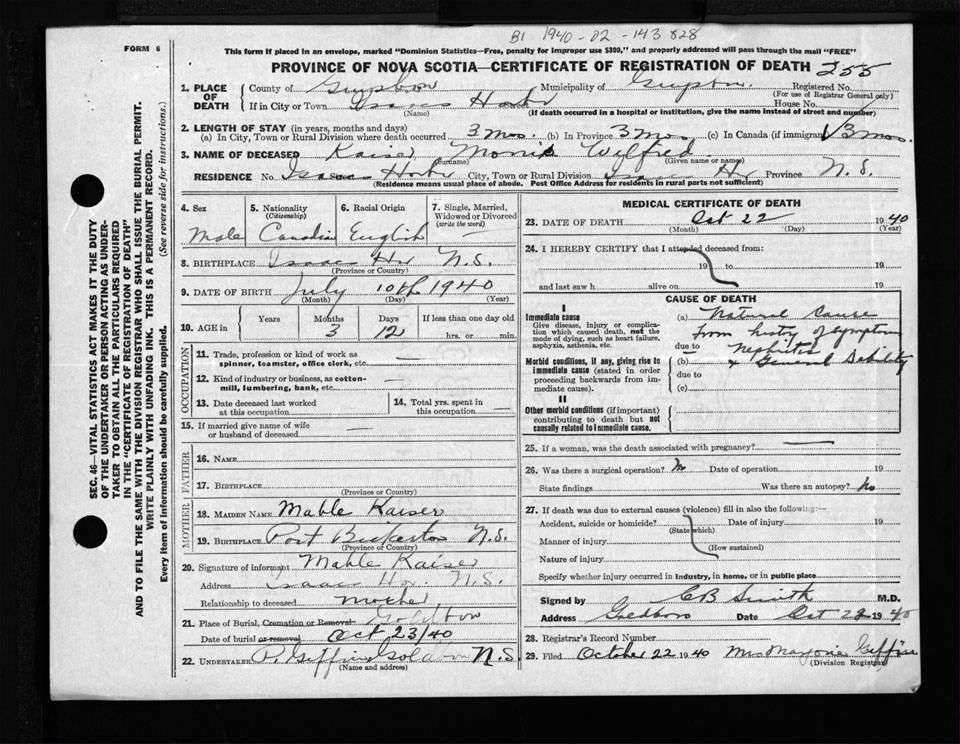 B1 1940-02-143828
FORM 6
This form if placed in an envelope, marked "Dominion Statistics—Free, penalty for improper use $300," and properly addressed will pass through the mail "FREE"
PROVINCE OF NOVA SCOTIA—CERTIFICATE OF REGISTRATION OF DEATH 255
SEC. 46—VITAL STATISTICS ACT MAKES IT THE DUTY
OF THE UNDERTAKER OR PERSON ACTING AS UNDER-
TAKER TO OBTAIN ALL THE PARTICULARS REQUIRED
IN THE "CERTIFICATE OF REGISTRATION OF DEATH"
AND TO FILE THE SAME WITH THE DIVISION REGISTRAR WHO SHALL ISSUE THE BURIAL PERMIT.
WRITE PLAINLY WITH UNFADING INK. THIS IS A PERMANENT RECORD.
Every item of information should be carefully supplied. (See reverse side for instructions.)
1. PLACE OF DEATH
County of Municipality of Registered No.
(For use of Registrar General only)
If in City or Town Isaacs Harbr House No.
(Name) (If death occurred in a hospital or institution, give the name instead of street and number)
2. LENGTH OF STAY (in years, months and days)
(a) In City, Town or Rural Division where death occurred 3 mos. (b) In Province 3 mos (c) In Canada (if immigrant) 3 mos.
3. NAME OF DECEASED Kaiser Morris Wilfred
(Surname) (Given name or names)
RESIDENCE No. Isaacs Harbr City, Town or Rural Division Isaacs Hr Province N.S.
(Residence means usual place of abode. Post Office Address for residents in rural parts not sufficient)
4. Sex Male
5. Nationality (Citizenship) Canadian
6. Racial Origin English
7. Single, Married, Widowed or Divorced (write the word) —
8. BIRTHPLACE Isaacs Hr N.S.
(Province or Country)
9. DATE OF BIRTH July 10th 1940
(Month) (Day) (Year)
10. AGE in Years Months 3 Days 12 If less than one day old hrs. or min.
OCCUPATION
11. Trade, profession or kind of work as spinner, teamster, office clerk, etc. —
12. Kind of industry or business, as cotton-mill, lumbering, bank, etc. —
13. Date deceased last worked at this occupation
14. Total yrs. spent in this occupation —
15. If married give name of wife or husband of deceased
FATHER
16. NAME
17. BIRTHPLACE
(Province or Country)
MOTHER
18. MAIDEN NAME Mable Kaiser
19. BIRTHPLACE Port Bickerton N.S.
(Province or Country)
20. Signature of informant Mable Kaiser
Address Isaacs Hr. N.S.
Relationship to deceased mother
21. Place of Burial, Cremation or Removal Goldboro
Date of burial or removal Oct 23/40
22. UNDERTAKER P. Giffin Goldboro N.S
(Name and address)
MEDICAL CERTIFICATE OF DEATH
23. DATE OF DEATH Oct 22 1940
(Month) (Day) (Year)
24. I HEREBY CERTIFY that I attended deceased from:
19 to 19
and last saw h alive on 19
CAUSE OF DEATH
I
Immediate cause
Give disease, injury or complication which caused death, not the mode of dying, such as heart failure, asphyxia, asthenia, etc.
(a) Natural Cause
from history of symptoms
due to Nephritis
Morbid conditions, if any, giving rise to immediate cause (stated in order proceeding backwards from immediate cause).
(b) + General Debility
due to
(c)
II
Other morbid conditions (if important) contributing to death but not causally related to immediate cause.
25. If a woman, was the death associated with pregnancy? —
26. Was there a surgical operation? No Date of operation 19
State findings Was there an autopsy? No
27. If death was due to external causes (violence) fill in also the following:—
Accident, suicide or homicide? Date of injury 19
(State which)
Manner of injury
(How sustained)
Nature of injury
Specify whether injury occurred in industry, in home, or in public place
Signed by CB Smith M.D.
Address Goldboro Date Oct 22 1940
28. Registrar's Record Number
29. Filed October 22 1940 Mrs Marjorie Giffin
(Division Registrar)